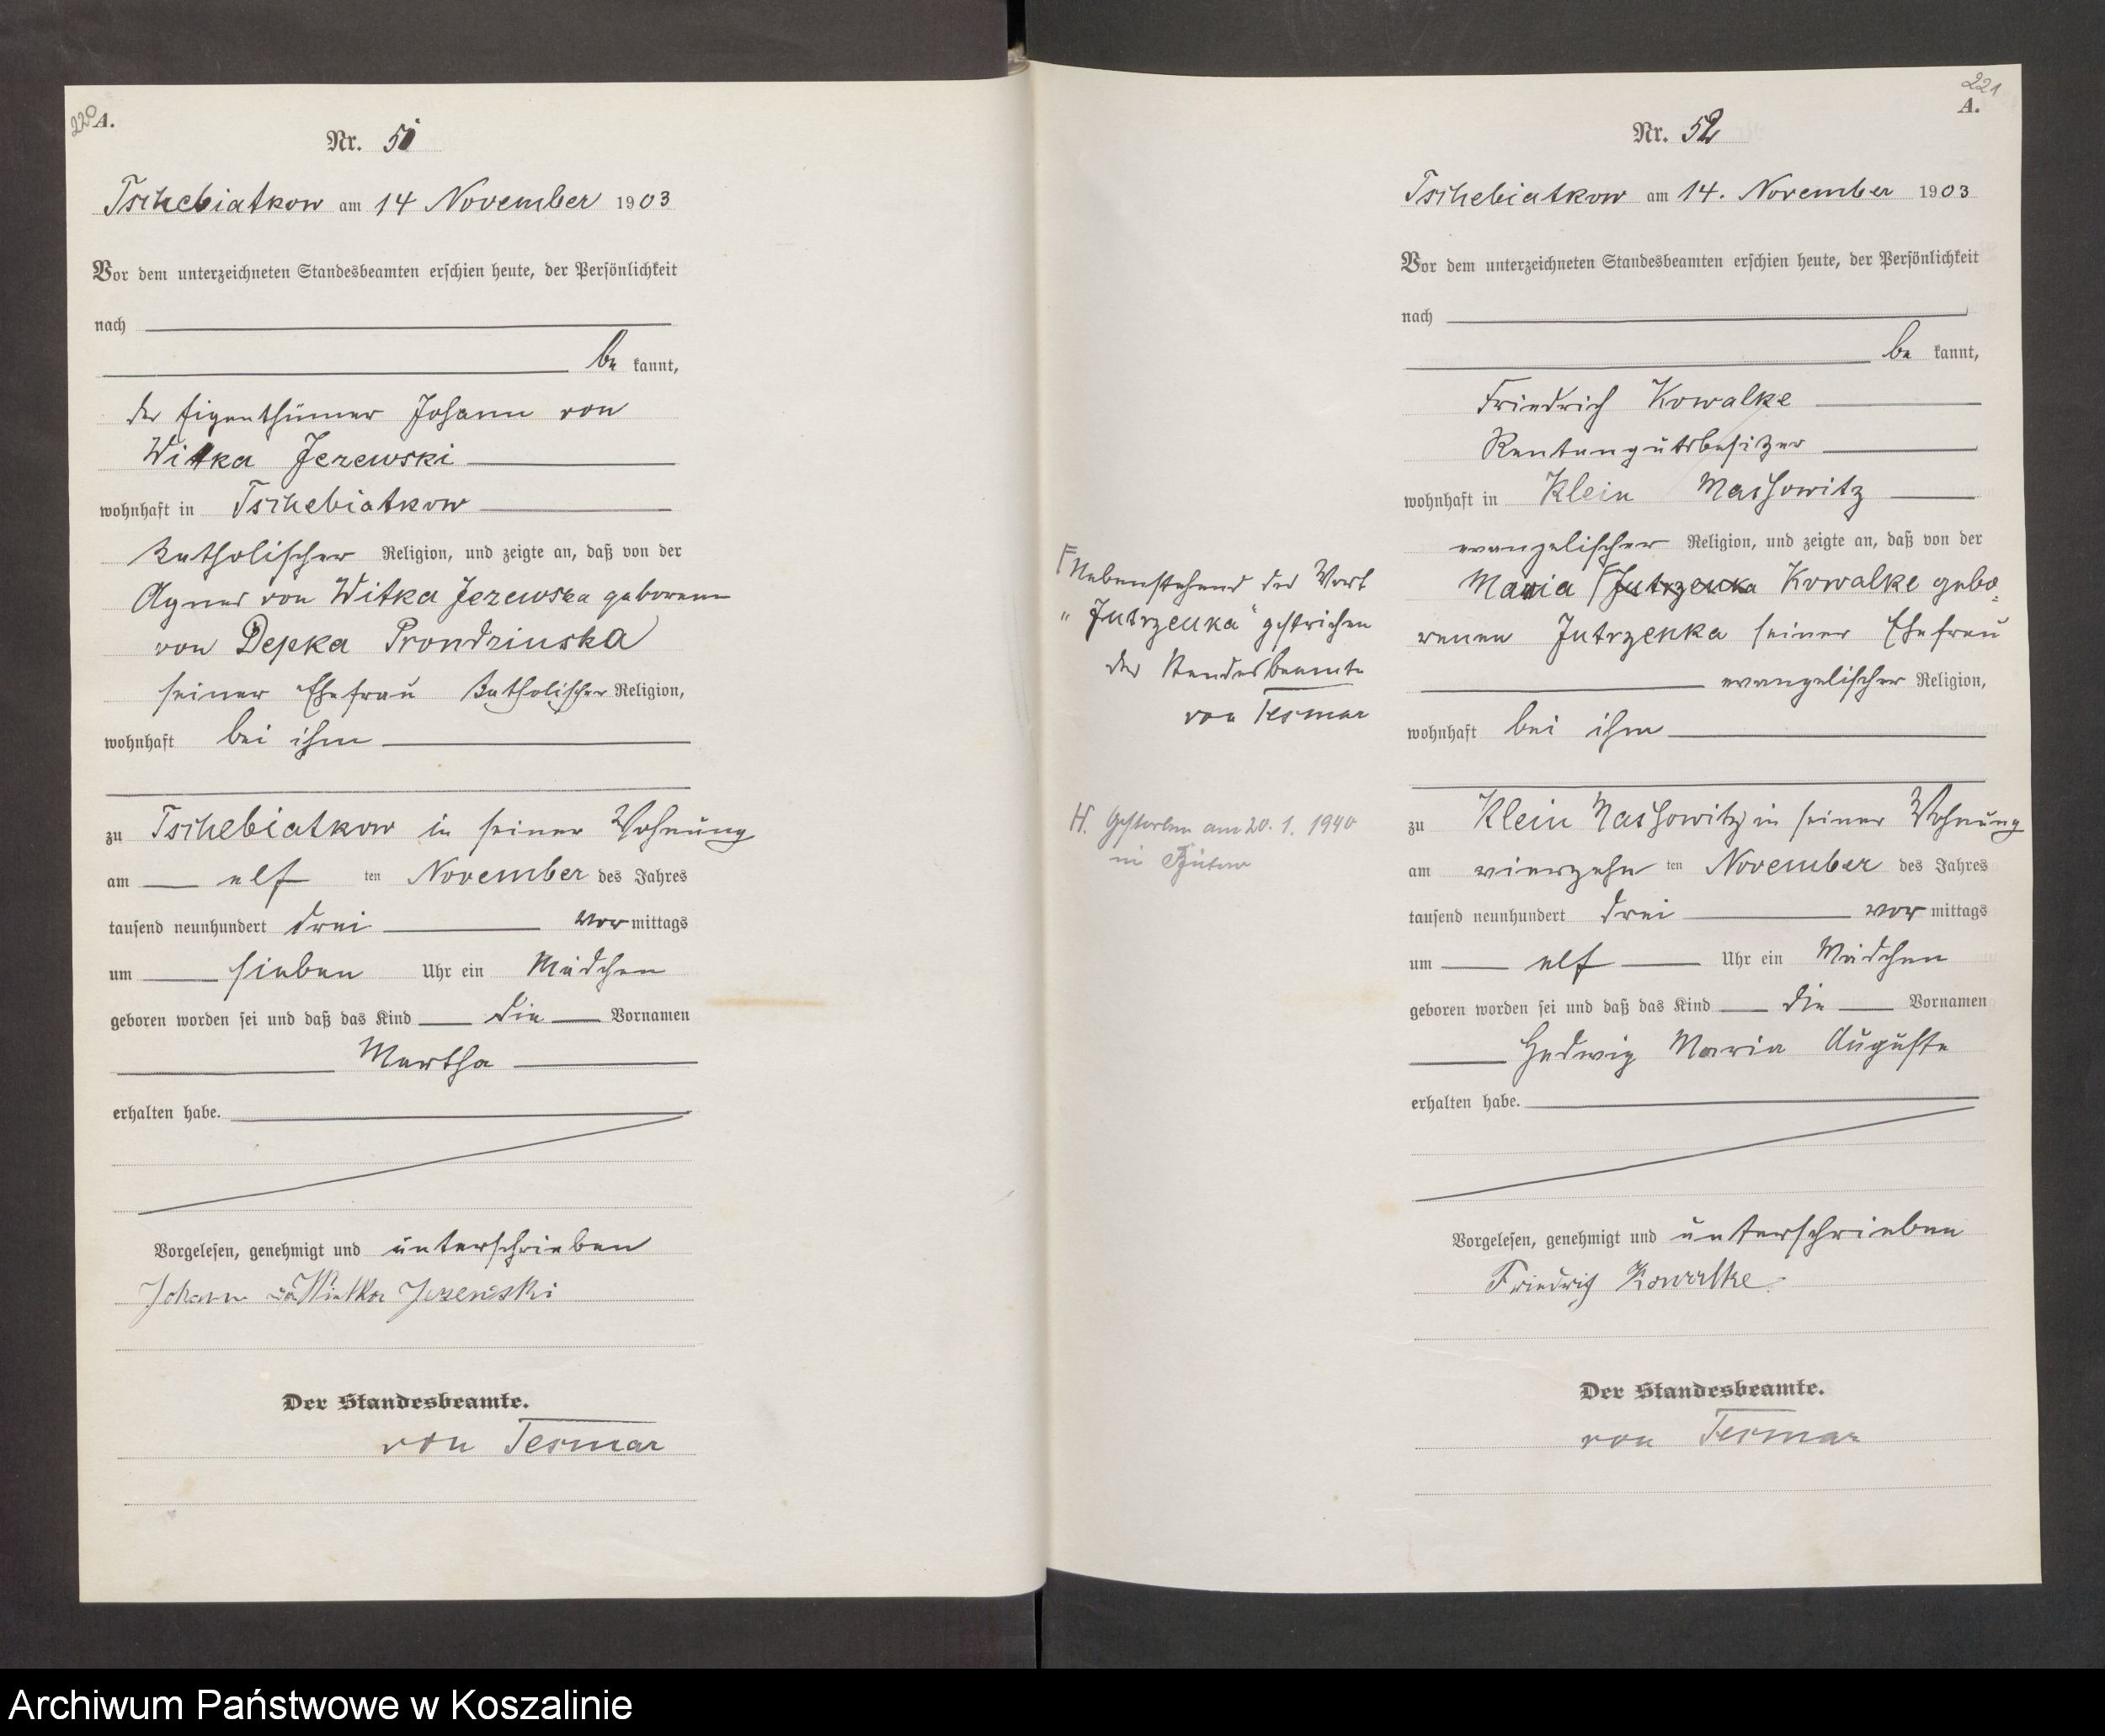 220
A.
Nr. 51
Tschebiatkow am 14 November 1903
Vor dem unterzeichneten Standesbeamten erschien heute, der Persönlichkeit
nach
be kannt,
der Eigenthümer Johann von
Witka Jezewski
wohnhaft in Tschebiatkow
katholischer Religion, und zeigte an, daß von der
Agnes von Witka Jezewska geborenen
von Depka Prondzinska
seiner Ehefrau katholischer Religion,
wohnhaft bei ihm
zu Tschebiatkow in seiner Wohnung
am elf ten November des Jahres
tausend neunhundert drei vor mittags
um sieben Uhr ein Mädchen
geboren worden sei und daß das Kind die Vornamen
Martha
erhalten habe.
Vorgelesen, genehmigt und unterschrieben
Johann von Witka Jezewski
Der Standesbeamte.
von Tesmar
221
A.
Nr. 52
Tschebiatkow am 14. November 1903
Vor dem unterzeichneten Standesbeamten erschien heute, der Persönlichkeit
nach
be kannt,
Friedrich Kowalke
Rentengutsbesitzer
wohnhaft in Klein Massowitz
evangelischer Religion, und zeigte an, daß von der
Maria Jutrzenka Kowalke gebo-
renen Jutrzenka seiner Ehefrau
evangelischer Religion,
wohnhaft bei ihm
zu Klein Massowitz in seiner Wohnung
am vierzehn ten November des Jahres
tausend neunhundert drei vor mittags
um elf Uhr ein Mädchen
geboren worden sei und daß das Kind die Vornamen
Hedwig Maria Auguste
erhalten habe.
Vorgelesen, genehmigt und unterschrieben
Friedrich Kowalke.
Der Standesbeamte.
von Tesmar
Nebenstehend das Wort
"Jutrzenka" gestrichen
der Standesbeamte
von Tesmar
H. Gestorben am 20. 1. 1940
in Bütow
Archiwum Państwowe w Koszalinie